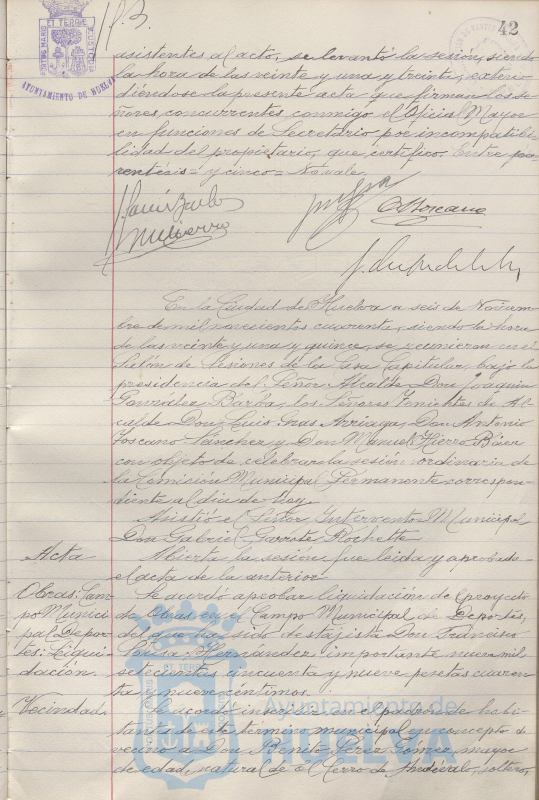 42
AYUNTAMIENTO DE HUELVA
asistentes al acto, se levantó la sesión, siendo
la hora de las veinte y una y treinta, exten-
diéndose la presente acta que firman los se-
ñores concurrentes, conmigo el Oficial Mayor
en funciones de Secretario por incompatibi-
lidad del propietario, que certifico. Entre pa-
rentésis = y cinco = No vale.
En la Ciudad de Huelva a seis de Noviem-
bre de mil novecientos cuarenta, siendo la hora
de las veinte y una y quince, se reunieron en el
Salón de Sesiones de la Casa Capitular, bajo la
presidencia del Señor Alcalde Don Joaquín
González Barba, los Señores Tenientes de Al-
calde Don Luis Gras Arriaga, Don Antonio
Toscano Sánchez y Don Manuel Hierro Báez
con objeto de celebrar la sesión ordinaria de
la Comisión Municipal Permanente correspon-
diente al día de hoy.
Asistió el Señor Interventor Municipal
Don Gabriel Garrote Rochette
Acta
Abierta la sesión fue leída y aprobada
el acta de la anterior
Obras: Cam-
po Munici-
pal Depor-
tes: Liqui-
dación.
Se acordó aprobar liquidación de proyecto
de obras en el Campo Municipal de Deportes,
del que ha sido destajista Don Francisco
Hernández importante nueve mil
setecientas cincuenta y nueve pesetas cuaren-
ta y nueve céntimos.
Vecindad.
Se acordó inscribir en el padrón de habi-
tantes de este término municipal en concepto de
vecino a Don Benito Pérez Gómez, mayor
de edad, natural de el Cerro de Andévalo, soltero,
Ayuntamiento de
HUELVA